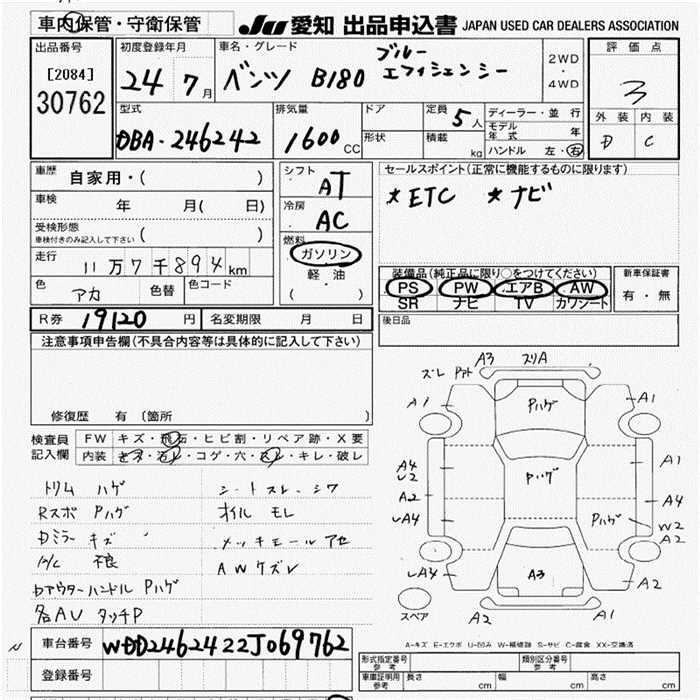 車内保管・守衛保管
JU 愛知 出品申込書 JAPAN USED CAR DEALERS ASSOCIATION
出品番号
[2084]
30762
初度登録年月
24 7月
車名・グレード
ベンツ B180 ブルー
エフィシェンシー
2WD
・
4WD
評価点
3
外装 内装
D C
型式
DBA-246242
排気量
1600 CC
ドア
形状
定員 5人
積載 kg
ディーラー・並行
モデル年式 年
ハンドル 左・右
車歴 自家用・( )
車検 年 月( 日)
受検形態
車検付きのみ記入して下さい ( )
走行 11万7千894km
色 アカ 色替 色コード
シフト AT
冷房 AC
燃料
ガソリン
軽油
( )
セールスポイント(正常に機能するものに限ります)
*ETC *ナビ
装備品(純正品に限り○をつけてください)
PS PW エアB AW
SR ナビ TV カワシート
新車保証書
有・無
R券 19120円 名変期限 月 日
後日品
注意事項申告欄(不具合内容等は具体的に記入して下さい)
修復歴 有 〔箇所 〕
検査員
記入欄
FW キズ・飛石・ヒビ割・リペア跡・X要
内装 キズ・汚レ・コゲ・穴・スレ・キレ・破レ
トリム ハゲ シートスレ・シワ
Rスポ Pハゲ オイル モレ
Dミラー キズ メッキモール アセ
H/C 不良 AWケズレ
アウターハンドル Pハゲ
各AU タッチP
ズレ アト A3 スリA
A1 Pハゲ A1
A4
U2
Pハゲ
A1
A2 A4
Pハゲ
W2
A2
A4
A4 A3 A2
スペア
A2 A1
A-キズ E-エクボ U-凹み W-補修跡 S-サビ C-腐食 XX-交換済
車台番号 WDD2462422J069762
登録番号
型式指定番号
参考
類別区分番号
参考
車庫証明用
参考
長さ cm 幅 cm 高さ cm